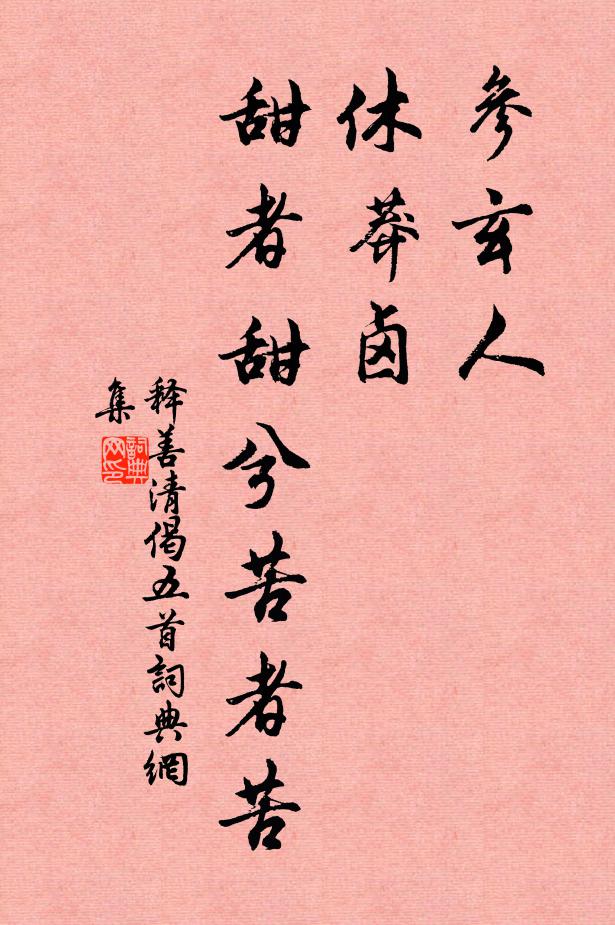 參玄人
休莽鹵
甜者甜兮苦者苦
释善清偈五首詞典網
集
詞典
网印